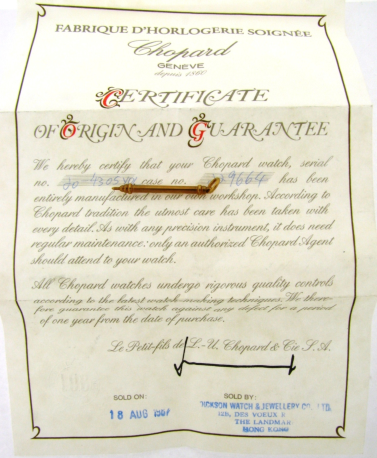 FABRIQUE D'HORLOGERIE SOIGNÉE
Chopard
GENÈVE
depuis 1860
CERTIFICATE
OF ORIGIN AND GUARANTEE
We hereby certify that your Chopard watch, serial
no. case no. 9664 has been
entirely manufactured in our own workshop. According to
Chopard tradition the utmost care has been taken with
every detail. As with any precision instrument, it does need
regular maintenance: only an authorized Chopard Agent
should attend to your watch.
All Chopard watches undergo rigorous quality controls
according to the latest watch-making techniques. We there-
fore guarantee this watch against any defect for a period
of one year from the date of purchase.
Le Petit-fils de L.-U. Chopard & Cie S.A.
SOLD ON:
SOLD BY:
18 AUG
DICKSON WATCH & JEWELLERY CO., LTD.
DES VOEUX R
THE LANDMAR
HONG KONG